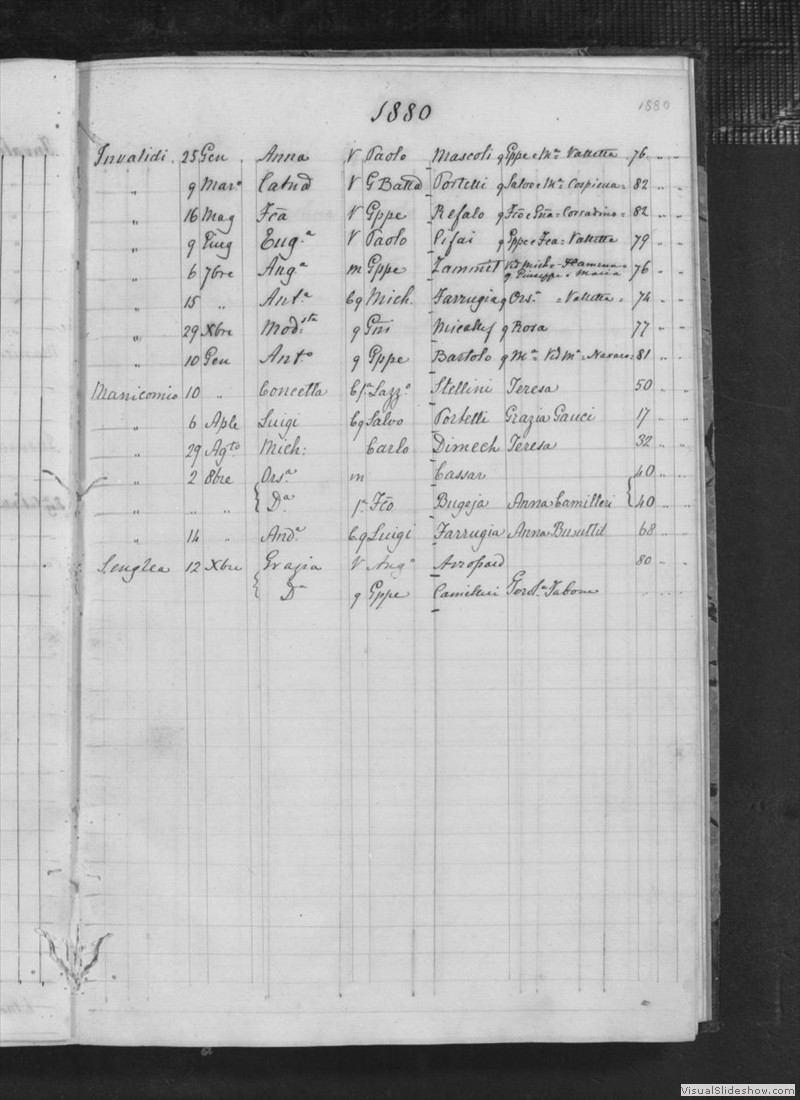 1880
1880
Invalidi 25 Gen Anna V Paolo Mascoli q Gppe e Mª Valletta 76 „ „
„ 9 Marº Catnª V G Battª Portelli q Salv e Mª Cospicua = 82 „ „
„ 16 Mag Fca V Gppe Refalo q Fco e = Corradino = 82 „ „
„ 9 Eugª V Paolo q Gppe e Fca = Valletta 79 „ „
„ 6 7bre Angª m Gppe Zammit
q Giuseppe e Maria 76 „ „
„ 15 „ Antª Cq Mich. Farrugia q Orsª = Valletta = 74 „ „
„ 29 Xbre Modesta q Gni Micallef q Rosa 77 „ „
„ 10 Gen Antº q Gppe Bartolo q Mª 81 „ „
Manicomio 10 „ Concetta Lazzº Stellini Teresa 50 „ „
„ 6 Aple Luigi Cq Salvo Portelli Grazia Gauci 17 „ „
„ 29 Agto Mich: Carlo Dimech Teresa 32 „ „
„ 2 8bre Orsª m Cassar 40 „ „
„ „ „ Dª Fco Bugeja Anna Camilleri 40 „ „
„ 14 „ Andª Cq Luigi Farrugia Anna Busuttil 68 „ „
Senglea 12 Xbre Grazia V Angº 80 „ „
Dª q Gppe Camilleri Tabone
VisualSlideshow.com